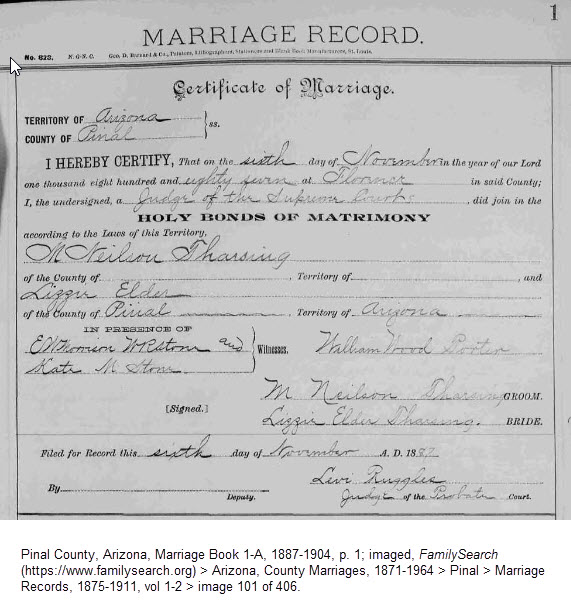 1
MARRIAGE RECORD.
No. 823. N.G.S.C. Geo. D. Barnard & Co., Printers, Lithographers, Stationers and Blank Book Manufacturers, St. Louis.
Certificate of Marriage.
TERRITORY OF Arizona
COUNTY OF Pinal } ss.
I HEREBY CERTIFY, That on the sixth day of November in the year of our Lord
one thousand eight hundred and eighty seven at Florence in said County;
I, the undersigned, a Judge of the Supreme Court, did join in the
HOLY BONDS OF MATRIMONY
according to the Laws of this Territory,
M Neilson Tharsing
of the County of , Territory of , and
Lizzie Elder
of the County of Pinal , Territory of Arizona
IN PRESENCE OF
W R Stone and } Witnesses. William Wood Porter
Kate M Stone
M Neilson Tharsing GROOM.
[Signed.]
Lizzie Elder Tharsing. BRIDE.
Filed for Record this sixth day of November A. D. 1887
Levi Ruggles
By Deputy. Judge of the Probate Court.
Pinal County, Arizona, Marriage Book 1-A, 1887-1904, p. 1; imaged, FamilySearch
(https://www.familysearch.org) > Arizona, County Marriages, 1871-1964 > Pinal > Marriage
Records, 1875-1911, vol 1-2 > image 101 of 406.